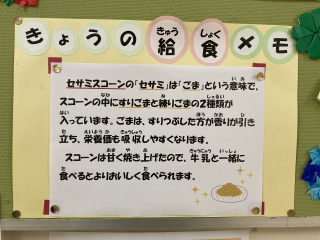 きょうの給食メモ
セサミスコーンの「セサミ」は「ごま」という意味で、
スコーンの中にすりごまと練りごまの2種類が
入っています。ごまは、すりつぶした方が香りが引き
立ち、栄養価も吸収しやすくなります。
スコーンは甘く焼き上げたので、牛乳と一緒に
食べるとよりおいしく食べられます。